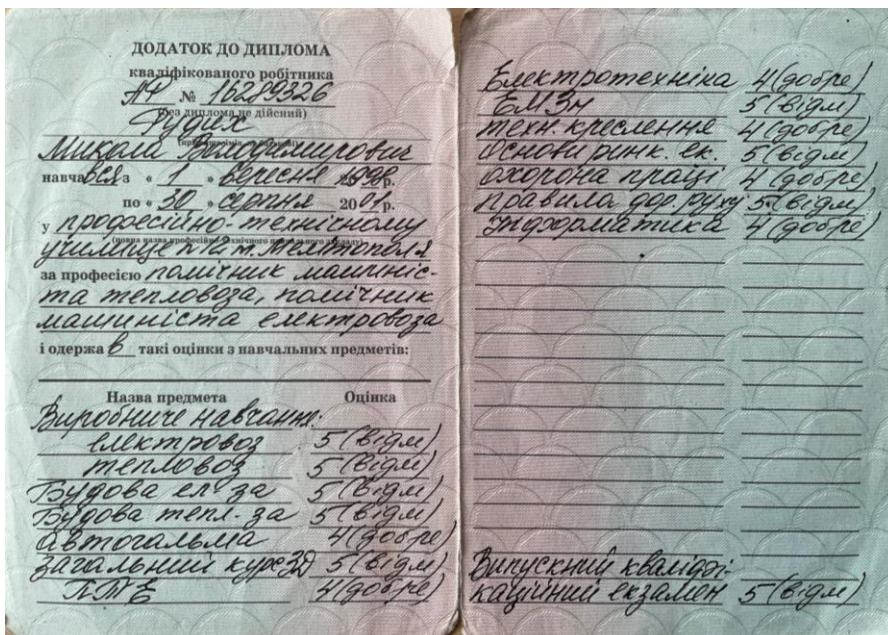 ДОДАТОК ДО ДИПЛОМА
кваліфікованого робітника
АР № 16289326
(без диплома не дійсний)
Рудих
Микола Володимирович
навчався з « 1 » вересня 1998 р.
по « 30 » серпня 2001 р.
у професійно-технічному
училище м. Мелітополя
за професією помічник машиніс-
та тепловоза, помічник
машиніста електровоза
і одержав такі оцінки з навчальних предметів:
Назва предмета Оцінка
Виробниче навчання:
електровоз 5 (відм)
тепловоз 5 (відм)
Будова ел-за 5 (відм)
Будова тепл-за 5 (відм)
автогальма 4 (добре)
загальний курс ЗД 5 (відм)
ПТЕ 4 (добре)
Електротехніка 4 (добре)
ЕМЗн 5 (відм)
техн. креслення 4 (добре)
основи ринк. ек. 5 (відм)
охорона праці 4 (добре)
правила дор. руху 5 (відм)
Інформатика 4 (добре)
Випускний кваліфі-
каційний екзамен 5 (відм)